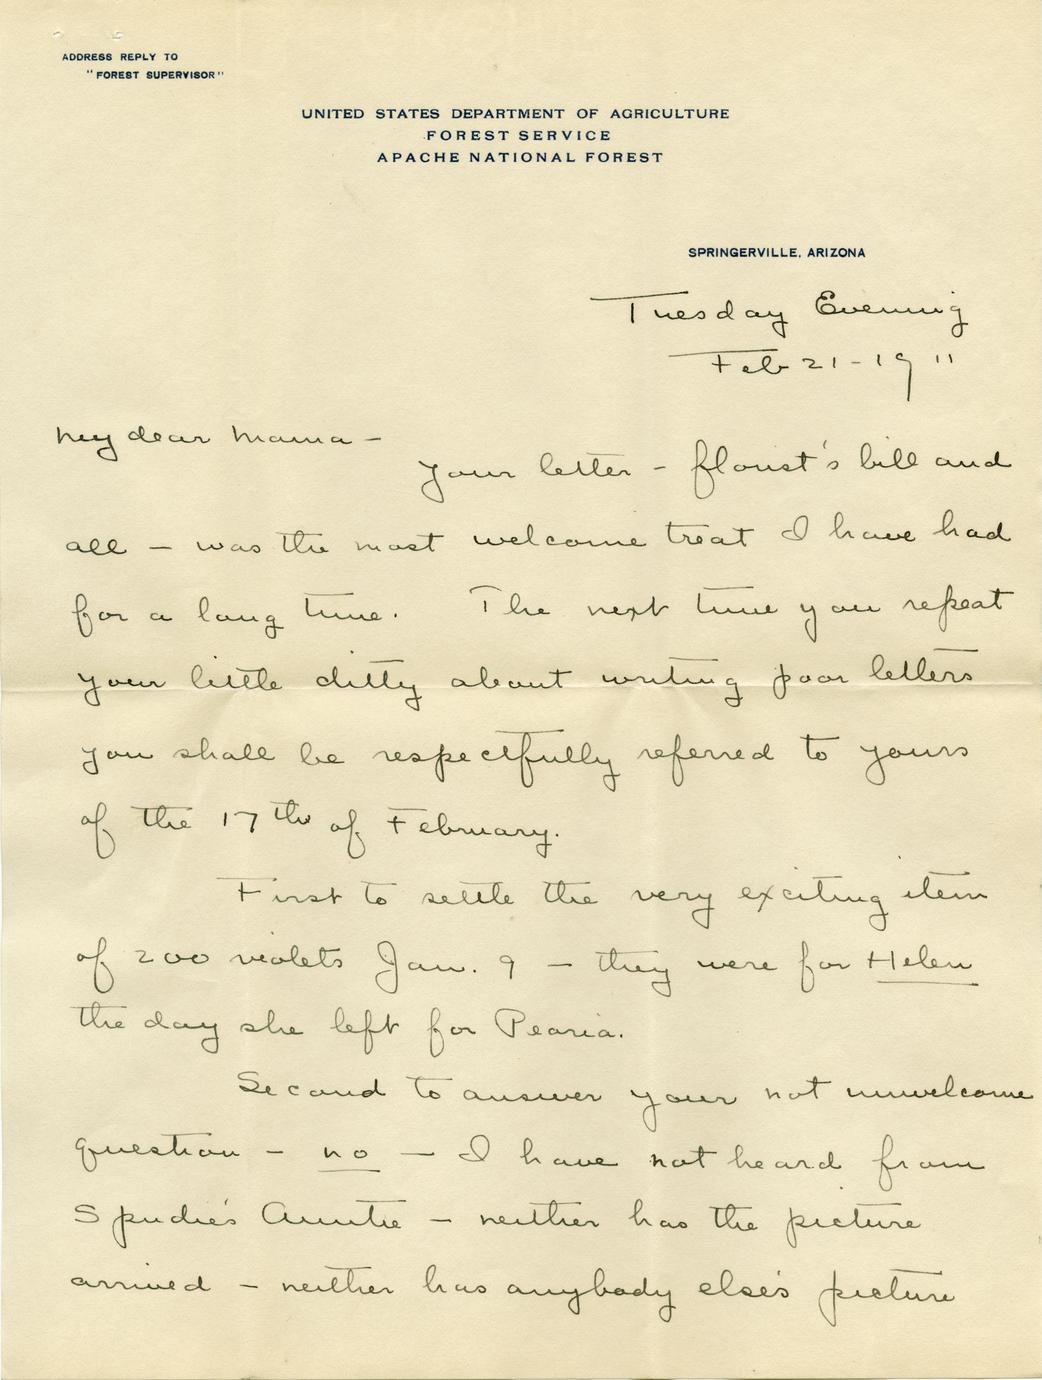 ADDRESS REPLY TO
"FOREST SUPERVISOR"
UNITED STATES DEPARTMENT OF AGRICULTURE
FOREST SERVICE
APACHE NATIONAL FOREST
SPRINGERVILLE, ARIZONA
Tuesday Evening
Feb 21-1911
My dear Mama -
Your letter - florist's bill and
all - was the most welcome treat I have had
for a long time. The next time you repeat
your little ditty about writing poor letters
you shall be respectfully referred to yours
of the 17th of February.
First to settle the very exciting item
of 200 violets Jan. 9 - they were for Helen
the day she left for Pearia.
Second to answer your not unwelcome
question - no - I have not heard from
Spudie's Auntie - neither has the picture
arrived - neither has anybody else's picture